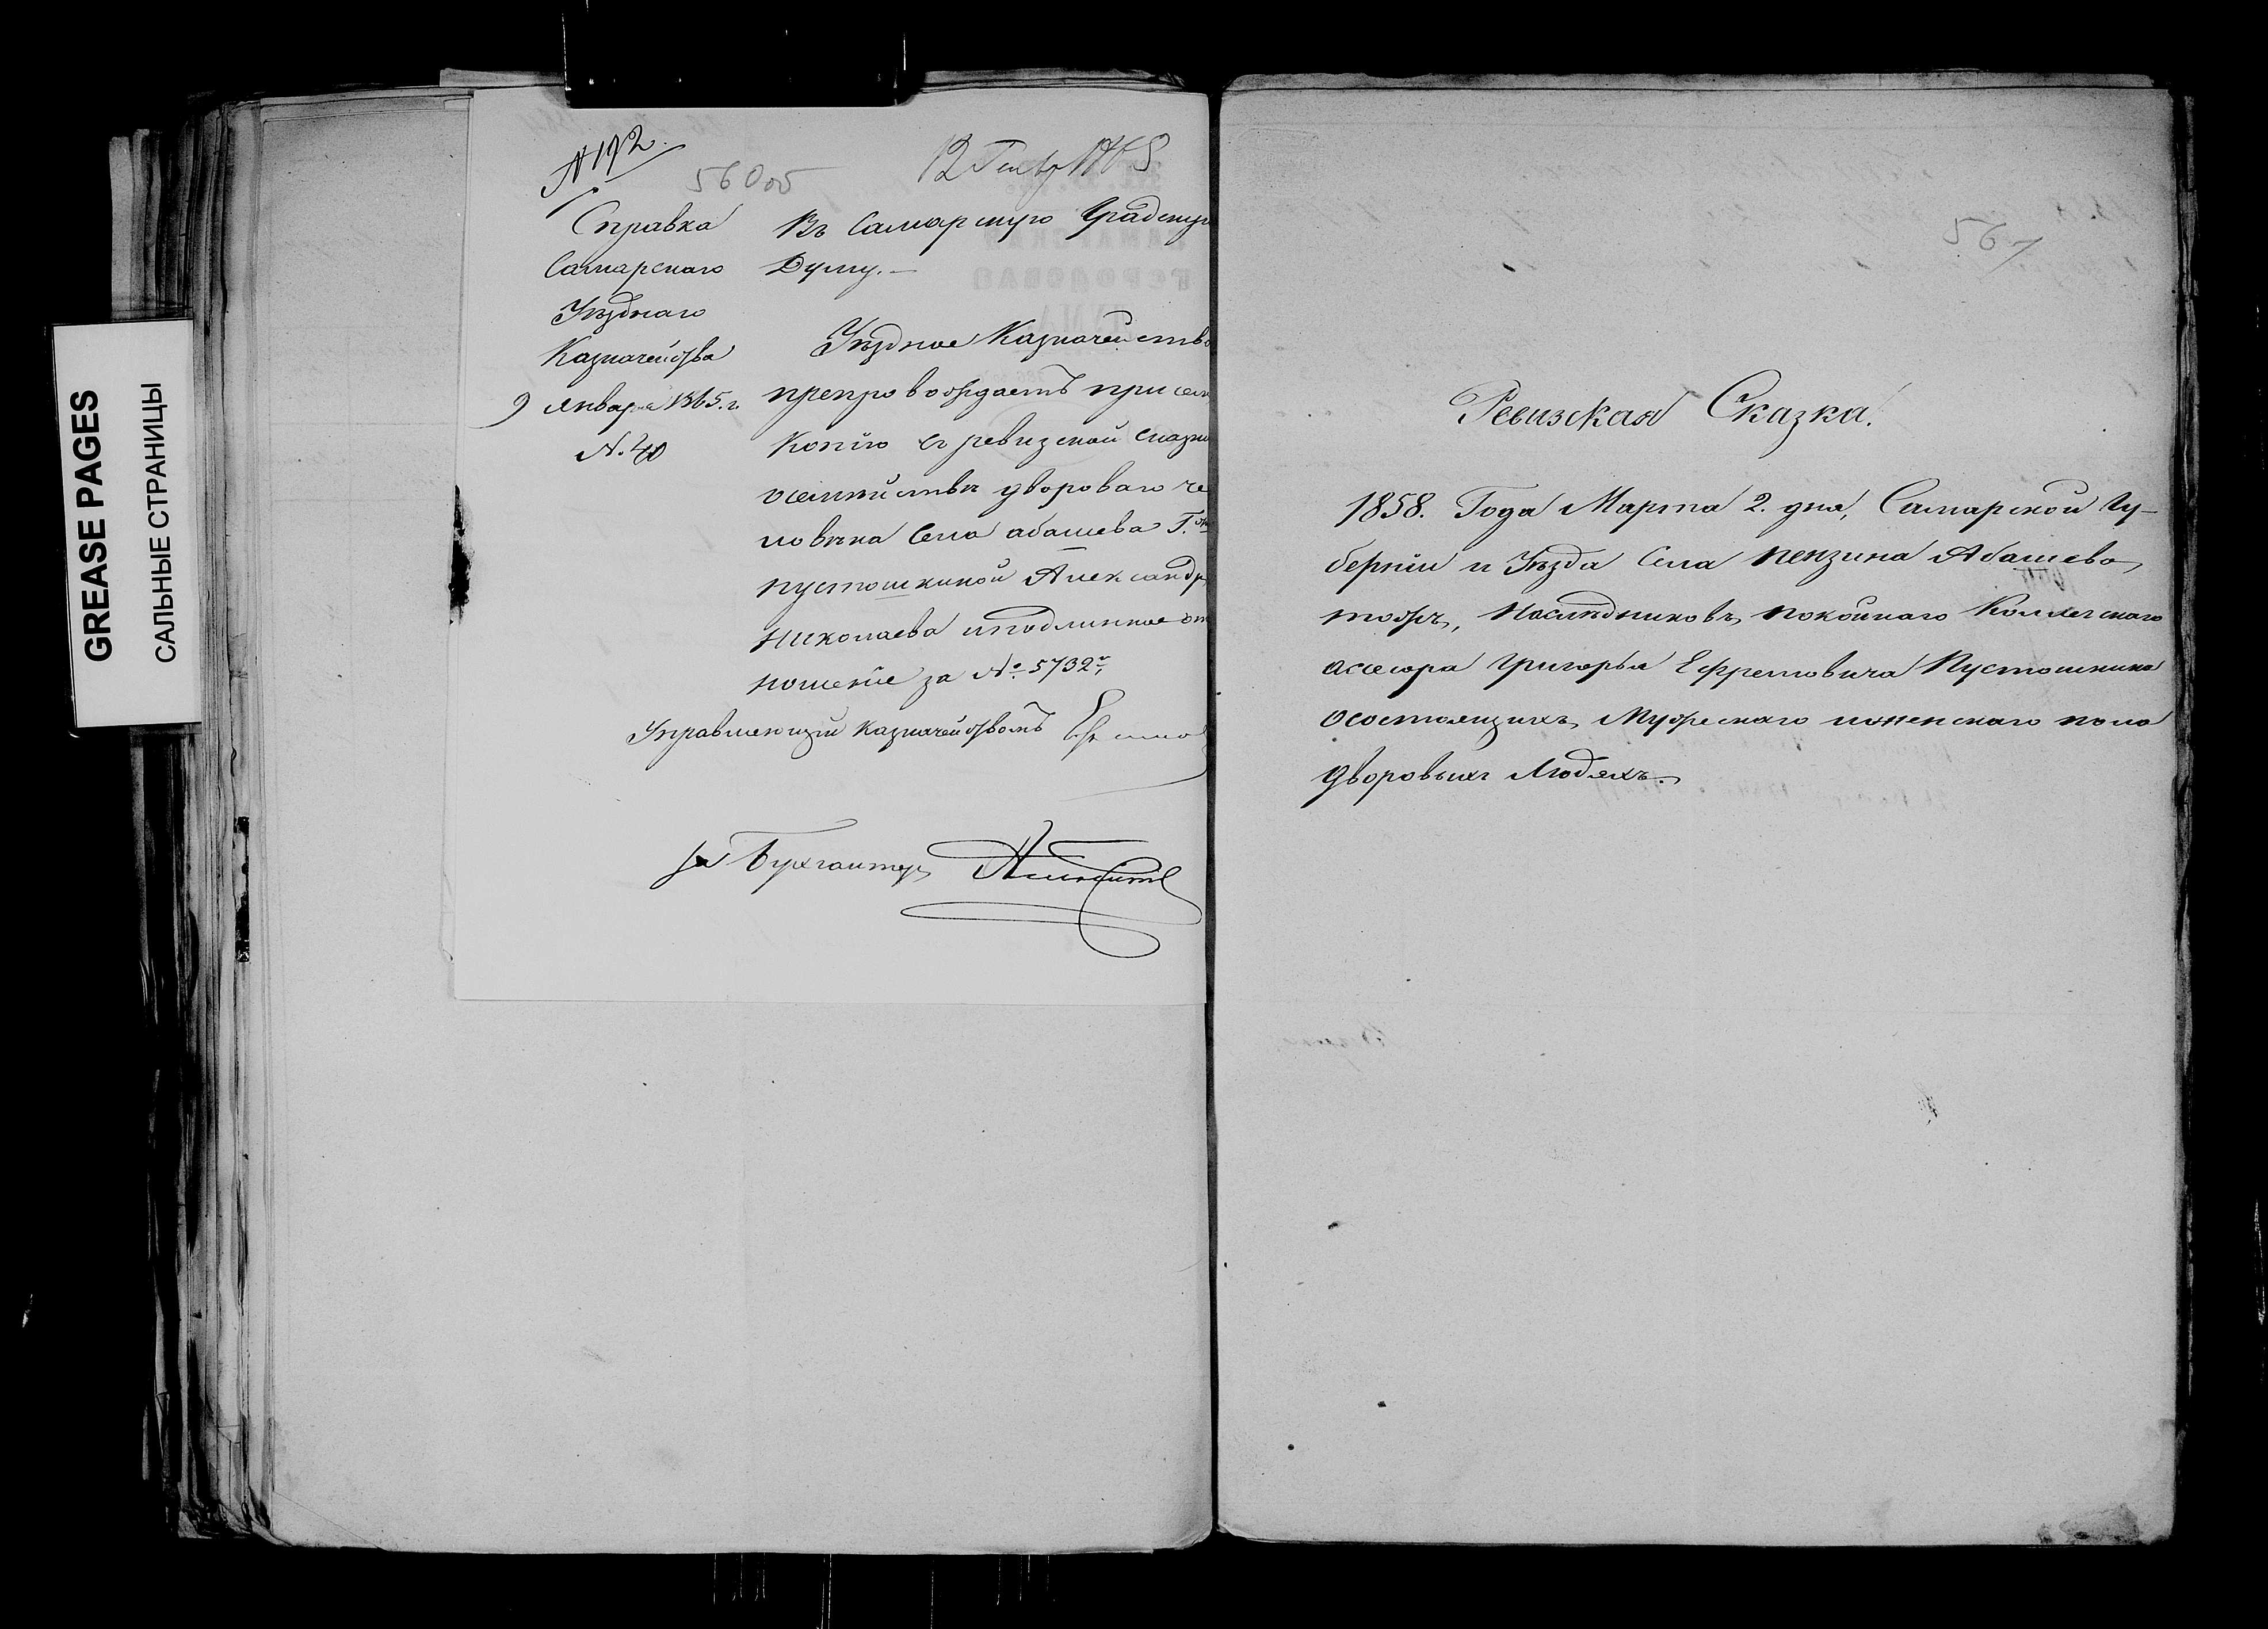 GREASE PAGES
САЛЬНЫЕ СТРАНИЦЫ
№ 192.
560об
12 Генвр 1865
Справка
Самарскаго
Уѣзднаго
Казначейства
9 января 1865. г.
№. 40
Въ Самарскую Градскую
Думу. —
Уѣздное Казначейство
препровождаетъ при сем
копію съ ревизской сказки
о семействѣ двороваго че
ловѣка Села Абашева Г.жи
Пустошкиной Александр
Николаева и подлинное от
ношеніе за №. 5732.
Управляющій Казначействомъ
за Бухгалтер
567
Ревизская Сказка.
1858. Года Марта 2. дня, Самарской Гу-
берніи и Уѣзда Села Пензина Абашево
тожъ, Наслѣдниковъ покойнаго Коллежскаго
ассесора Григорья Ефремовича Пустошкина
о состоящихъ Мужескаго и женскаго пола
дворовыхъ Людяхъ.